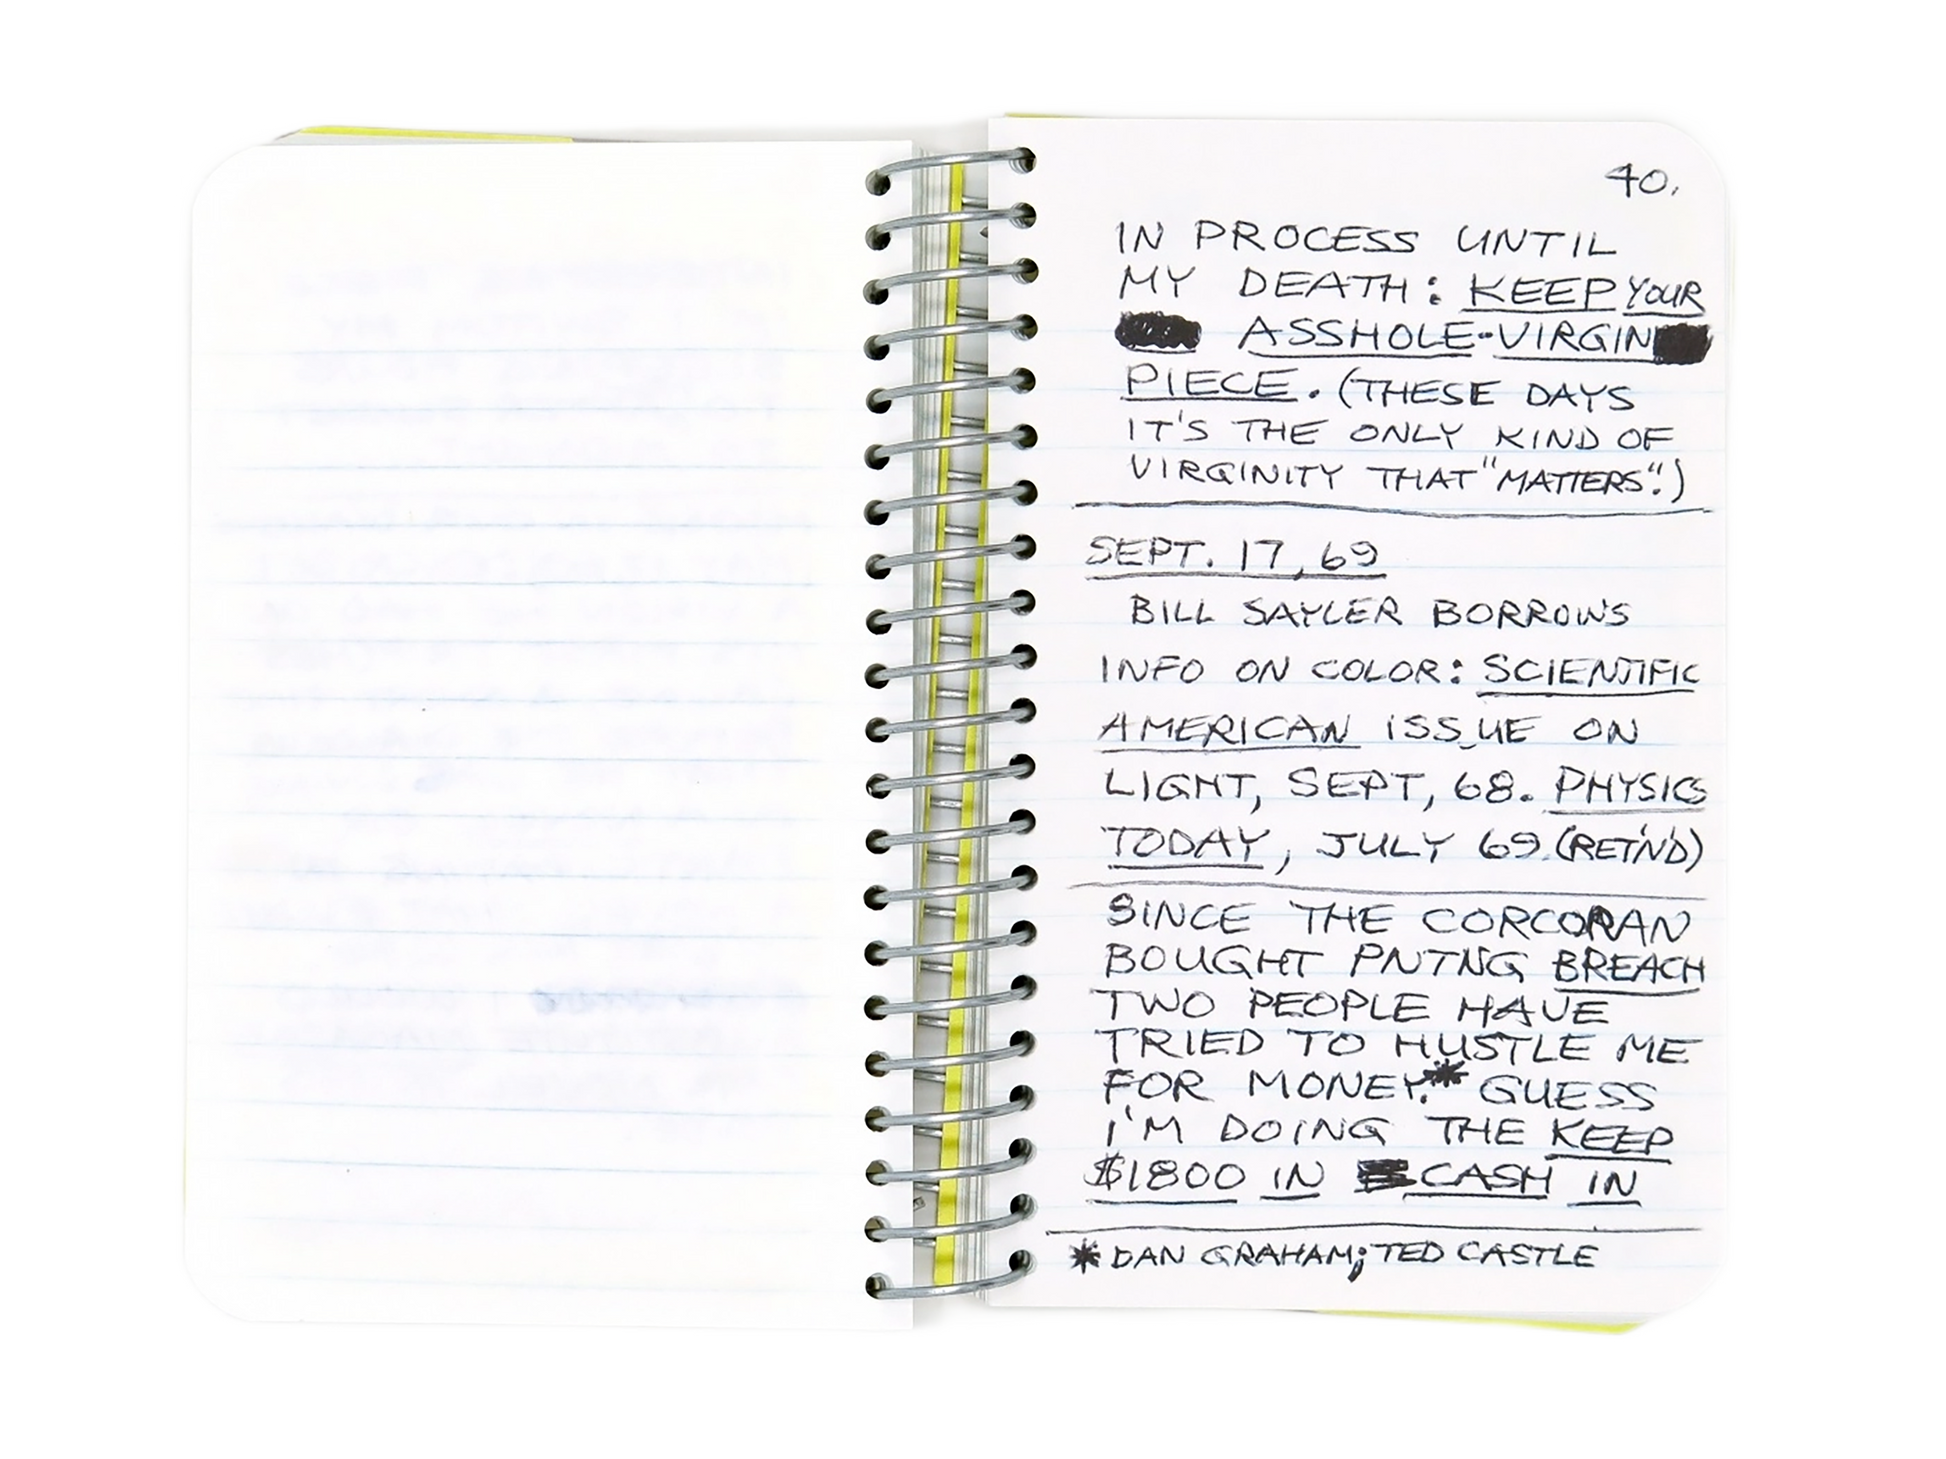 40.
IN PROCESS UNTIL
MY DEATH: KEEP YOUR
ASSHOLE-VIRGIN
PIECE. (THESE DAYS
IT'S THE ONLY KIND OF
VIRGINITY THAT "MATTERS".)
SEPT. 17, 69
BILL SAYLER BORROWS
INFO ON COLOR: SCIENTIFIC
AMERICAN ISSUE ON
LIGHT, SEPT, 68. PHYSICS
TODAY, JULY 69. (RET'N'D)
SINCE THE CORCORAN
BOUGHT PNTNG BREACH
TWO PEOPLE HAVE
TRIED TO HUSTLE ME
FOR MONEY.* GUESS
I'M DOING THE KEEP
$1800 IN CASH IN
*DAN GRAHAM; TED CASTLE